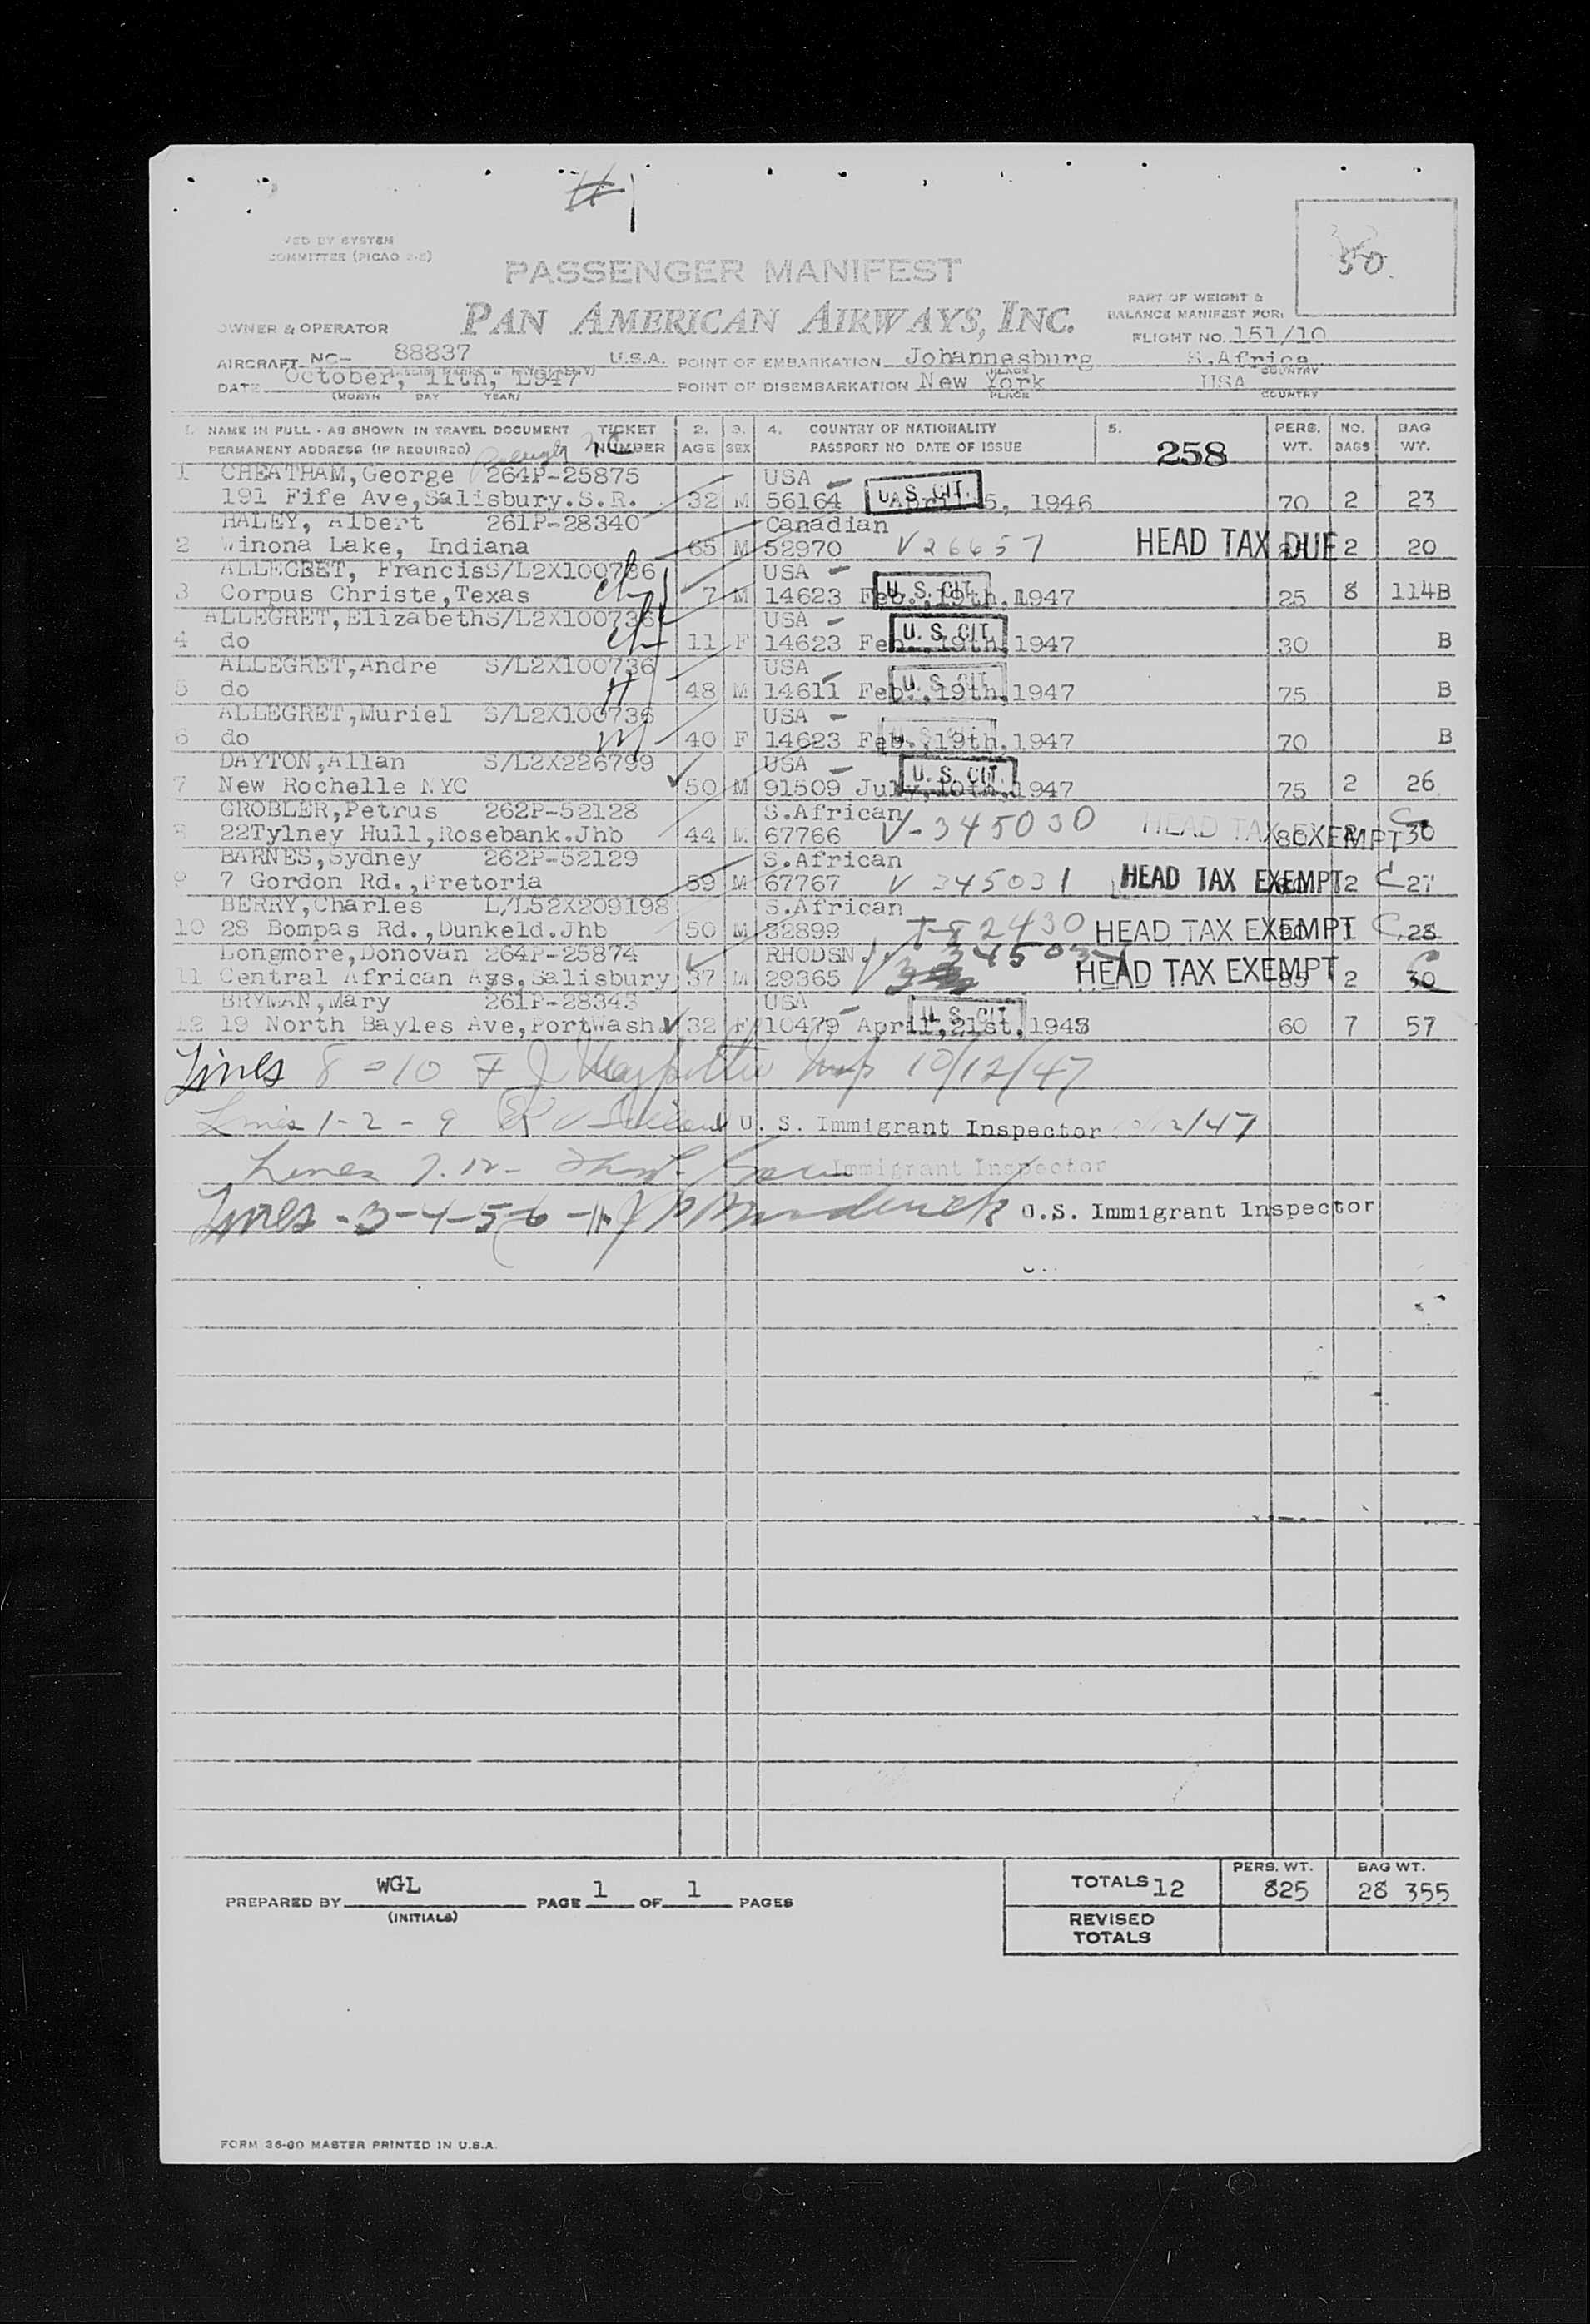 50.
COMMITTEE (PICAO
PASSENGER MANIFEST
PAN AMERICAN AIRWAYS, INC.
PART OF WEIGHT &
BALANCE MANIFEST FOR:
OWNER & OPERATOR
FLIGHT NO. 151/10
AIRCRAFT NC- 88837 U.S.A. POINT OF EMBARKATION Johannesburg S.Africa
PLACE COUNTRY
DATE October, 11th, 1947 POINT OF DISEMBARKATION New York USA
(MONTH DAY YEAR) PLACE COUNTRY
1. NAME IN FULL - AS SHOWN IN TRAVEL DOCUMENT TICKET 2. 3. 4. COUNTRY OF NATIONALITY 5. PERS. NO. BAG
PERMANENT ADDRESS (IF REQUIRED) NUMBER AGE SEX PASSPORT NO DATE OF ISSUE 258 WT. BAGS WT.
1 CHEATHAM,George 264P-25875 USA
191 Fife Ave,Salisbury.S.R. 32 M 56164 U. S. CIT. 5, 1946 70 2 23
HALEY, Albert 261P-28340 Canadian
2 Winona Lake, Indiana 65 M 52970 V26657 HEAD TAX DUE 2 20
ALLEGRET, FrancisS/L2X100736 USA
3 Corpus Christe,Texas 7 M 14623 Feb.,19th,1947 U. S. CIT. 25 8 114B
ALLEGRET,ElizabethS/L2X100736 USA
4 do 11 F 14623 Feb.,19th,1947 U. S. CIT. 30 B
ALLEGRET,Andre S/L2X100736 USA
5 do 48 M 14611 Feb.,19th,1947 U. S. CIT. 75 B
ALLEGRET,Muriel S/L2X100736 USA
6 do 40 F 14623 Feb.,19th,1947 70 B
DAYTON,Allan S/L2X226799 USA
7 New Rochelle NYC 50 M 91509 July,10th,1947 U. S. CIT. 75 2 26
GROBLER,Petrus 262P-52128 S.African
8 22Tylney Hull,Rosebank.Jhb 44 M 67766 V-345030 HEAD TAX EXEMPT 80 30
BARNES,Sydney 262P-52129 S.African
9 7 Gordon Rd.,Pretoria 59 M 67767 V 345031 HEAD TAX EXEMPT 2 C 27
BERRY,Charles L/L52X209198 S.African
10 28 Bompas Rd.,Dunkeld.Jhb 50 M 32899 2430 HEAD TAX EXEMPT 1 C 28
Longmore,Donovan 264P-25874 RHODSN
11 Central African Ags,Salisbury 37 M 29365 HEAD TAX EXEMPT 85 2 30
BRYMAN,Mary 261P-28343 USA
12 19 North Bayles Ave,PortWash. 32 F 10479 April,21st,1943 U. S. CIT. 60 7 57
Lines 8 - 10 F J Insp 10/12/47
Lines 1-2-9 U. S. Immigrant Inspector 10/12/47
Lines 7.12- Immigrant Inspector
Lines -3-4-5-6-11- U.S. Immigrant Inspector
PERS. WT. BAG WT.
PREPARED BY WGL PAGE 1 OF 1 PAGES TOTALS 12 825 28 355
(INITIALS)
REVISED
TOTALS
FORM 36-60 MASTER PRINTED IN U.S.A.